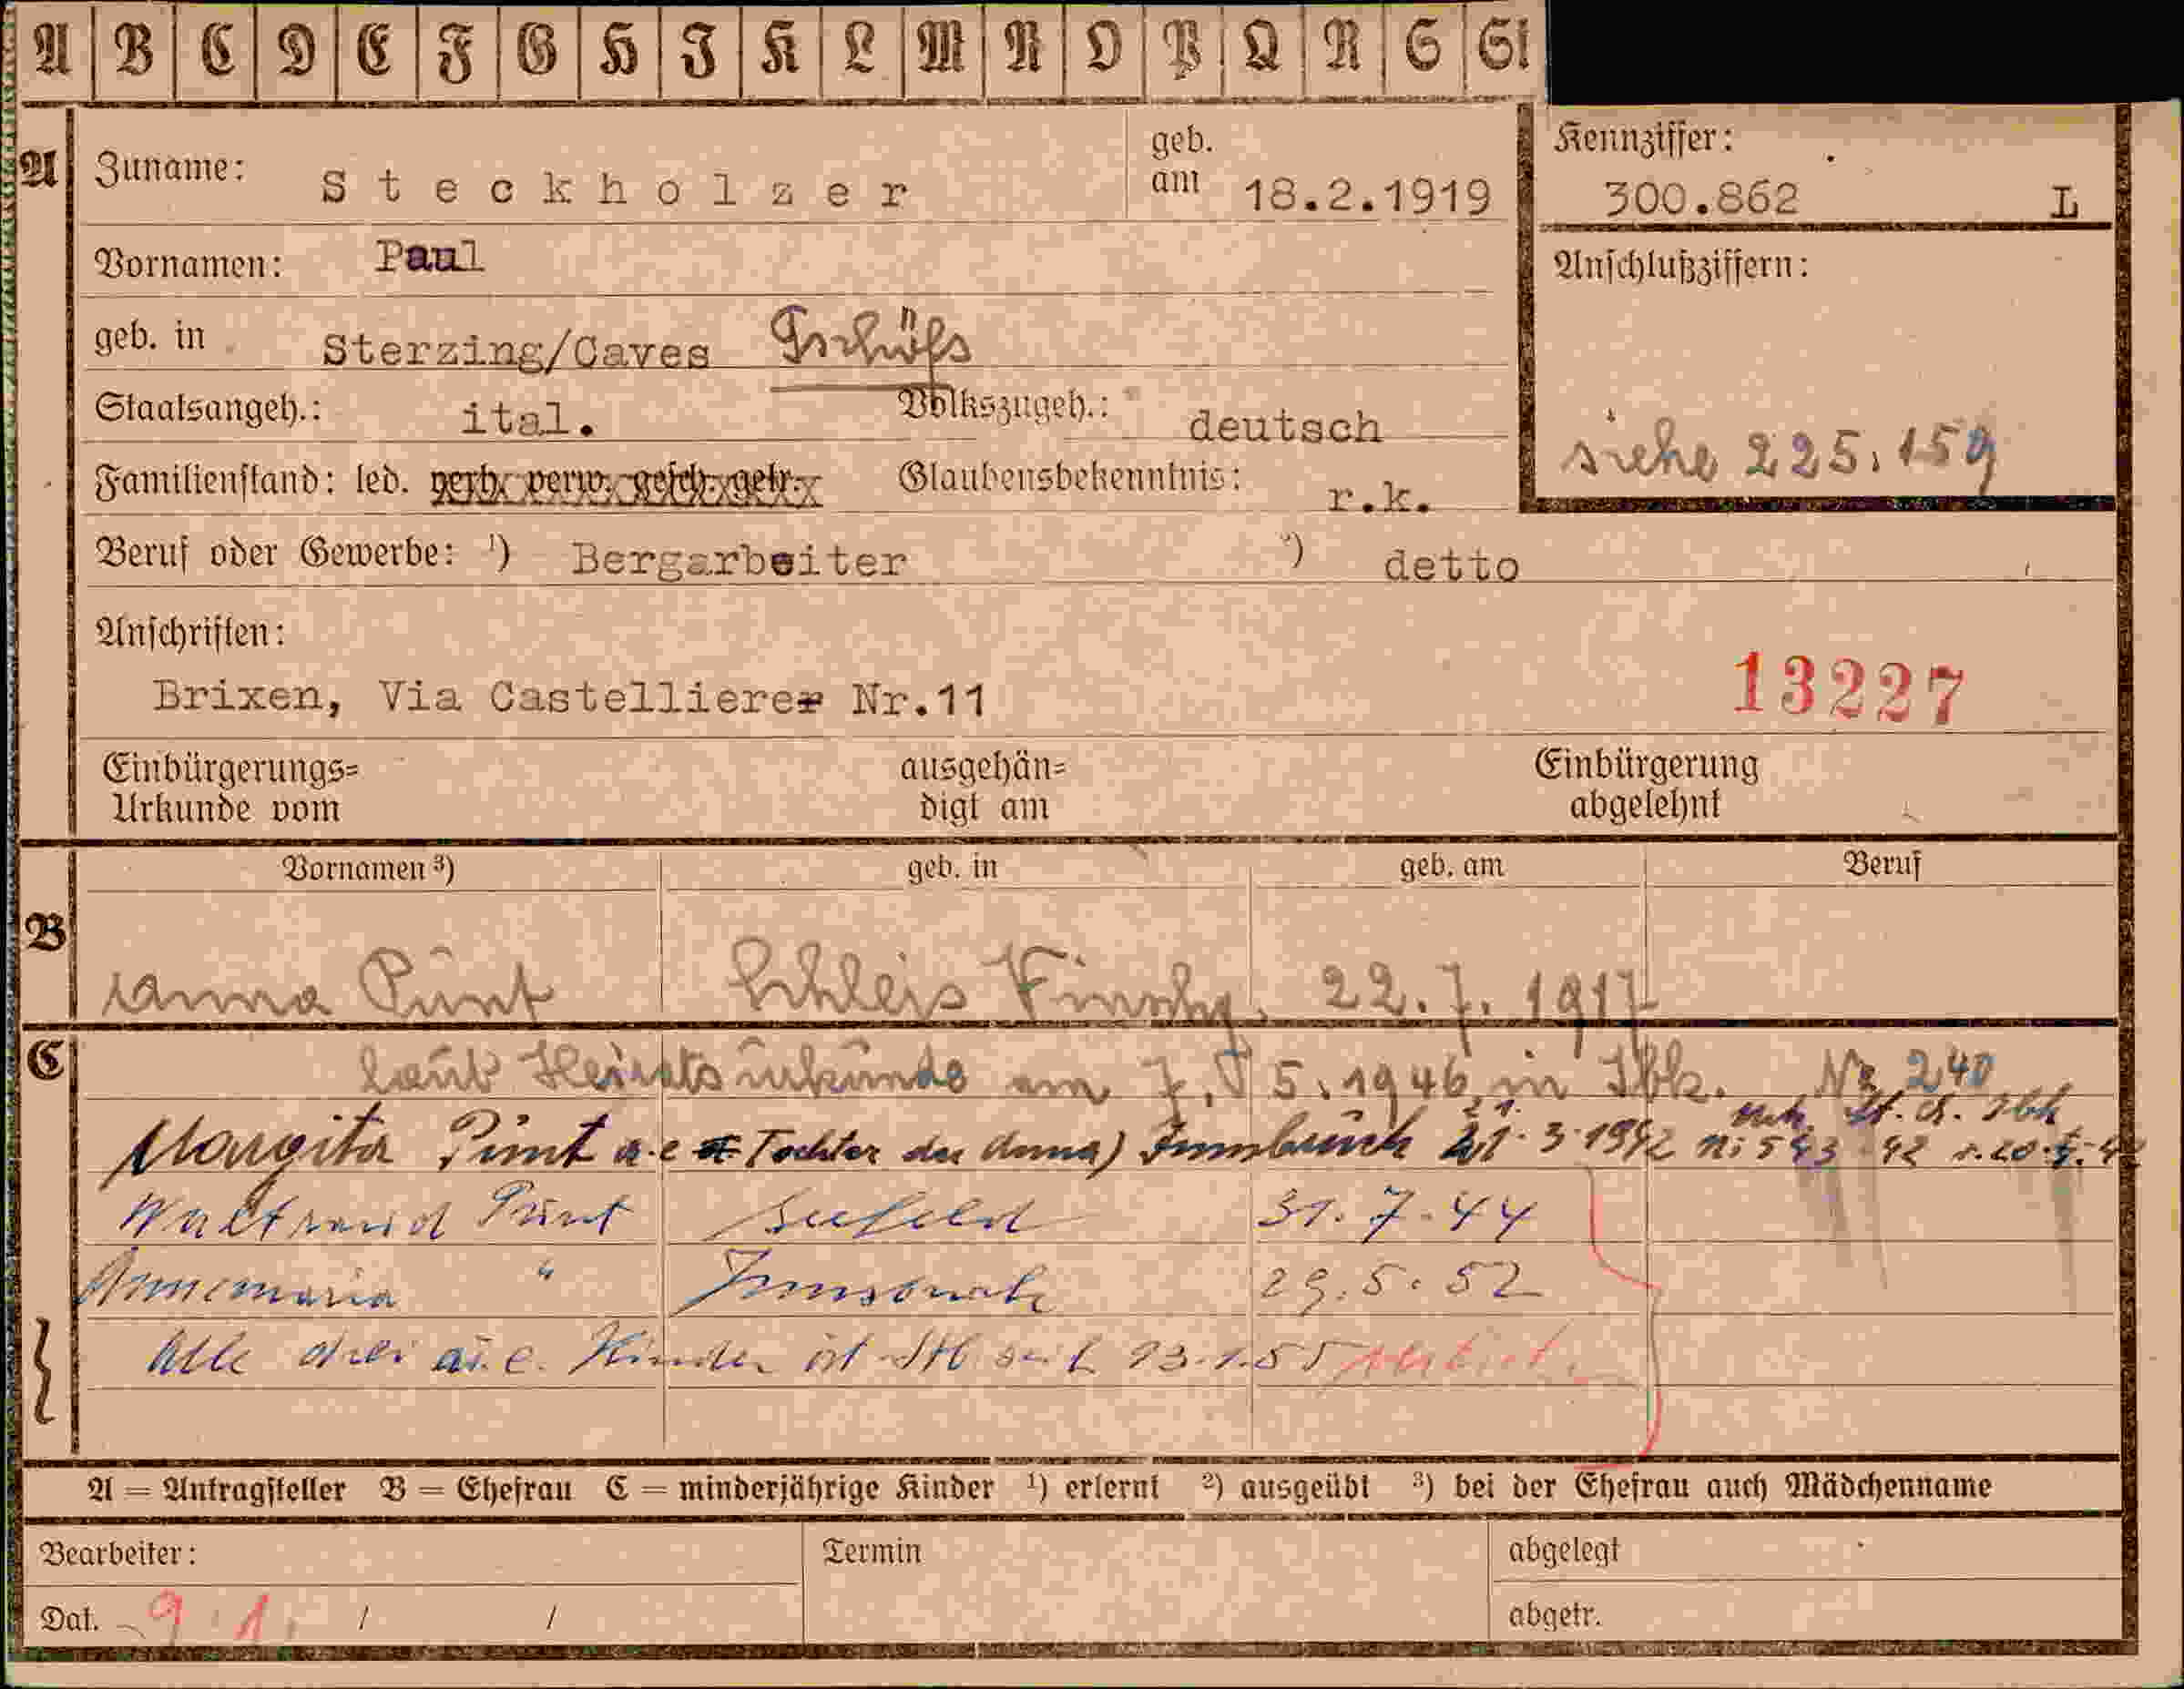 A B C D E F G H I K L M N O P Q R S St
A Zuname: Steckholzer geb. am 18.2.1919
Kennziffer: 300.862 L
Vornamen: Paul
Anschlußziffern:
geb. in Sterzing/Caves Tschöfs
Staatsangeh.: ital. Volkszugeh.: deutsch
siehe 225.159
Familienstand: led. verh. verw. gesch. getr. Glaubensbekenntnis: r.k.
Beruf oder Gewerbe: ¹) Bergarbeiter ²) detto
Anschriften:
Brixen, Via Castellierer Nr.11
13227
Einbürgerungs=
Urkunde vom
ausgehän=
digt am
Einbürgerung
abgelehnt
Vornamen ³) geb. in geb. am Beruf
B
Anna Punt Schleis Vinschg. 22.7.1917
C
laut Heiratsurkunde am 7. 5.1946 in Ibk. Nr 240
Margita Punt a.e Tochter der Anna) Innsbruck 21.3.1942
Waltraud Punt Seefeld 31.7.44
Annemaria " Innsbruck 29.5.52
Alle drei a.e. Kinder öst. Stb seit 13.1.55
A = Antragsteller B = Ehefrau C = minderjährige Kinder ¹) erlernt ²) ausgeübt ³) bei der Ehefrau auch Mädchenname
Bearbeiter: Termin abgelegt
Dat. 9.1. / / abgetr.